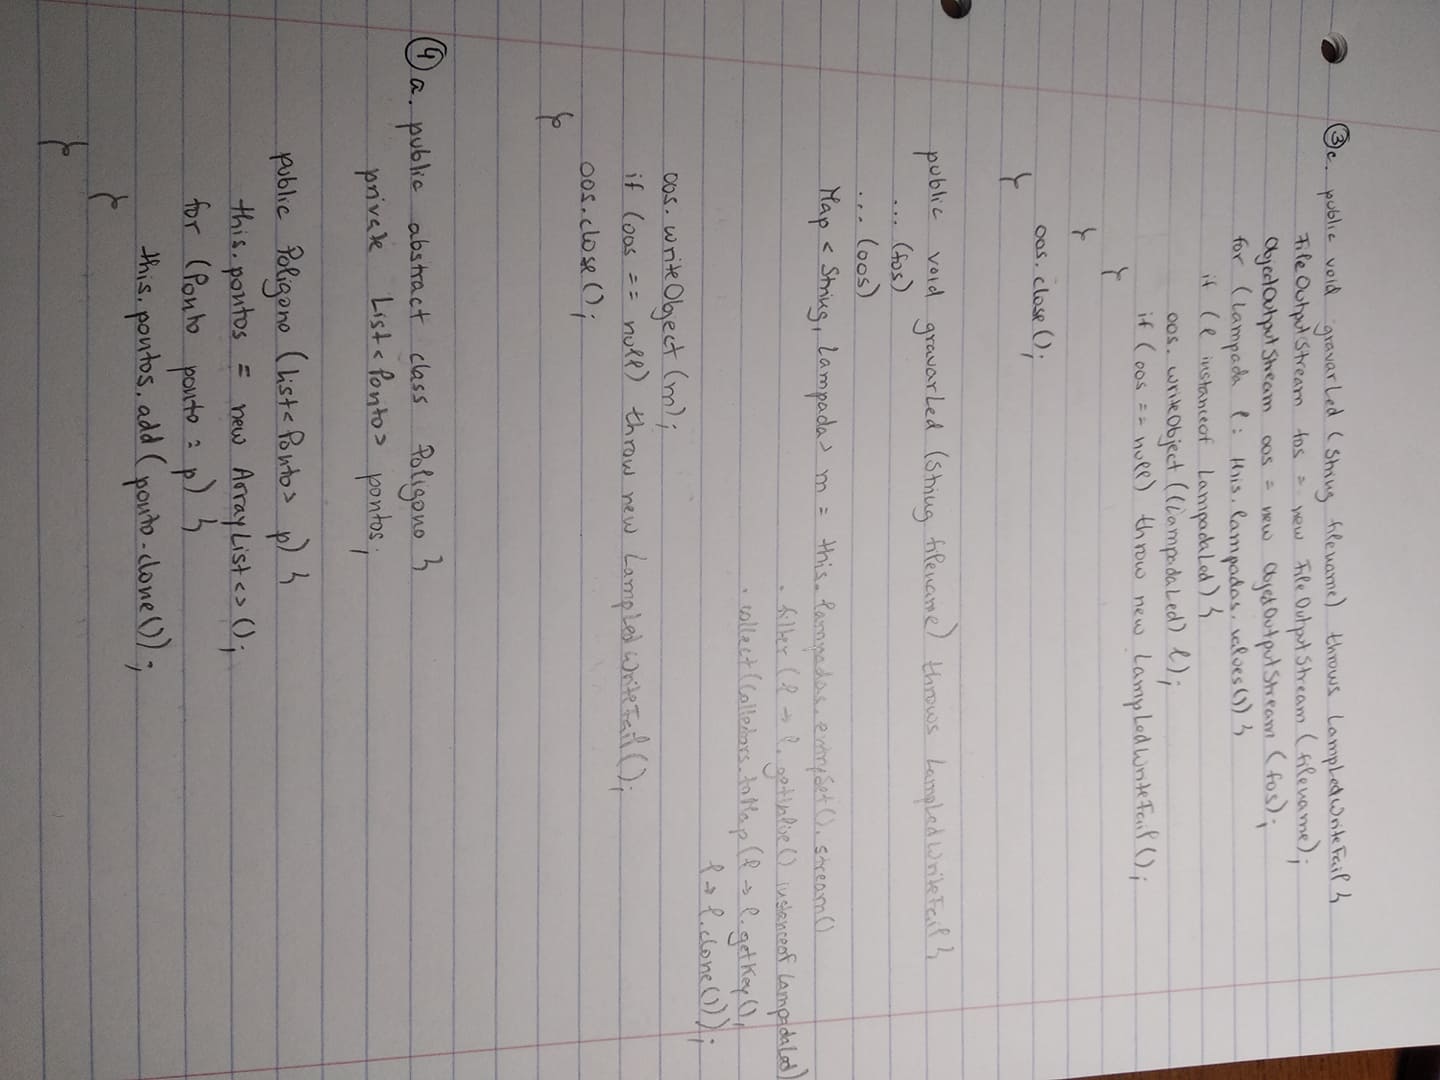 ③c. public void gravarLed (String filename) throws LampLedWriteFail {
FileOutputStream fos = new FileOutputStream (filename);
ObjectOutputStream oos = new ObjectOutputStream (fos);
for (Lampada l : this.lampadas.values()) {
if (l instanceof LampadaLed) {
oos.writeObject ((LampadaLed) l);
if (oos == null) throw new LampLedWriteFail ();
}
}
oos.close ();
}
public void gravarLed (String filename) throws LampLedWriteFail {
... (fos)
... (oos)
Map < String, Lampada> m = this.lampadas.entrySet().stream()
.filter (l → l.getValue() instanceof LampadaLed)
.collect (Collectors.toMap (l → l.getKey(),
l → l.clone()));
oos.writeObject (m);
if (oos == null) throw new LampLedWriteFail ();
oos.close ();
}
④a. public abstract class Poligono {
private List<Ponto> pontos;
public Poligono (List<Ponto> p) {
this.pontos = new ArrayList<> ();
for (Ponto ponto : p) {
this.pontos.add (ponto.clone());
}
}